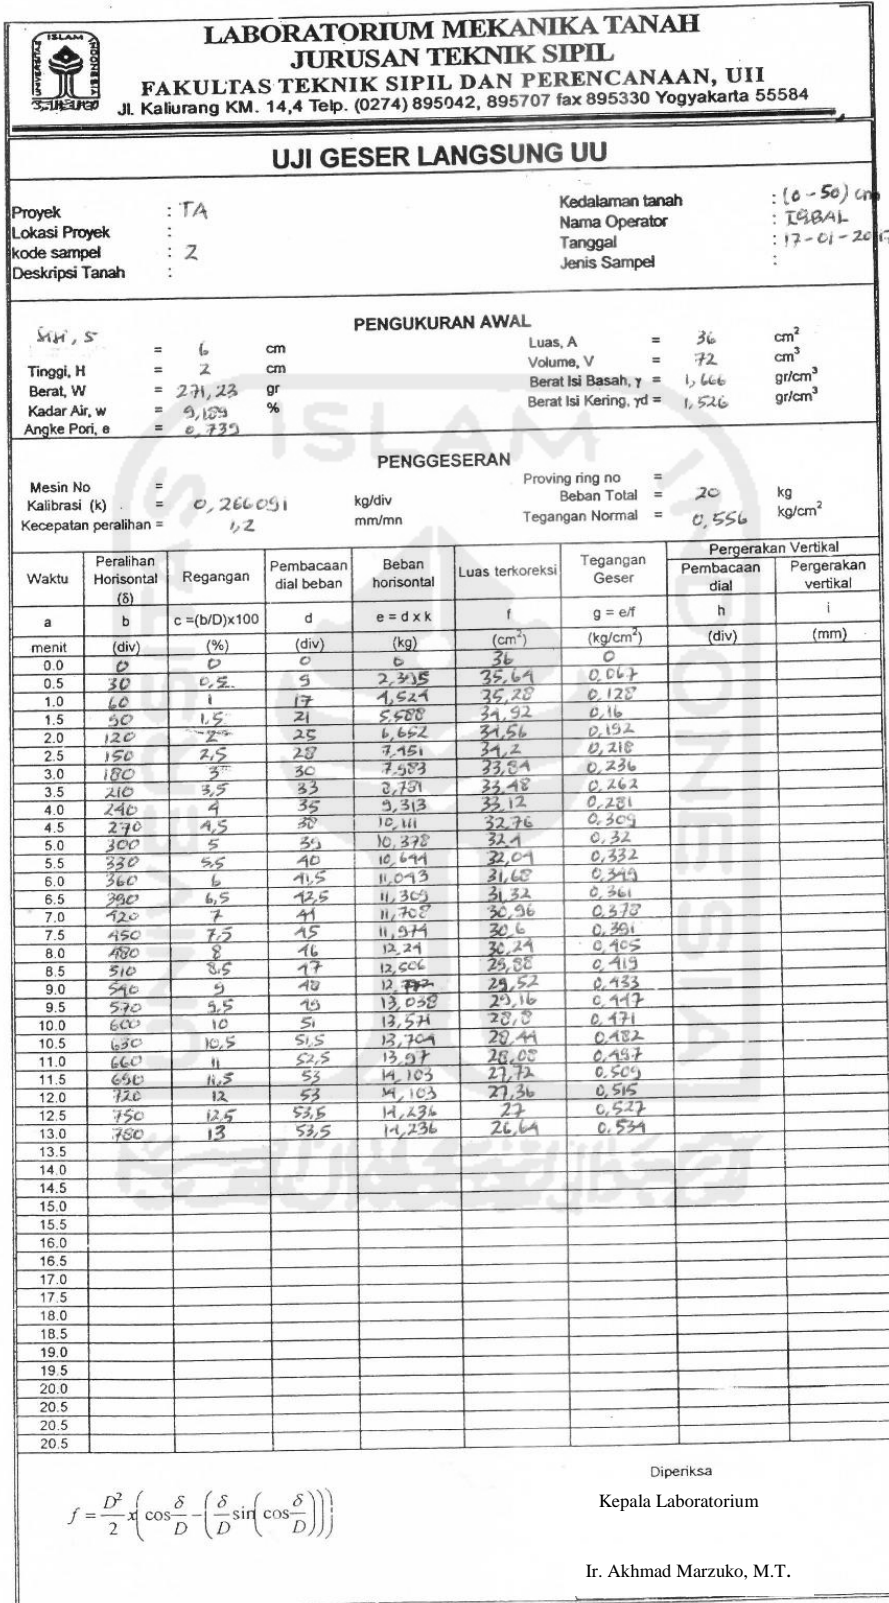 LABORATORIUM MEKANIKA TANAH
JURUSAN TEKNIK SIPIL
FAKULTAS TEKNIK SIPIL DAN PERENCANAAN, UII
Jl. Kaliurang KM. 14,4 Telp. (0274) 895042, 895707 fax 895330 Yogyakarta 55584
ISLAM
UNIVERSITAS
INDONESIA
UJI GESER LANGSUNG UU
Proyek : TA
Lokasi Proyek :
kode sampel : 2
Deskripsi Tanah :
Kedalaman tanah : (0 - 50) cm
Nama Operator : IQBAL
Tanggal : 17-01-20
Jenis Sampel :
PENGUKURAN AWAL
Sisi, S = 6 cm
Tinggi, H = 2 cm
Berat, W = 271,23 gr
Kadar Air, w = 9,189 %
Angke Pori, e = 0,739
Luas, A = 36 cm²
Volume, V = 72 cm³
Berat Isi Basah, γ = 1,666 gr/cm³
Berat Isi Kering, γd = 1,526 gr/cm³
PENGGESERAN
Mesin No =
Kalibrasi (k) . = 0,266091 kg/div
Kecepatan peralihan = 1,2 mm/mn
Proving ring no =
Beban Total = 20 kg
Tegangan Normal = 0,556 kg/cm²
Waktu Peralihan Horisontal (δ) Regangan Pembacaan dial beban Beban horisontal Luas terkoreksi Tegangan Geser Pergerakan Vertikal
Pembacaan dial Pergerakan vertikal
a b c =(b/D)x100 d e = d x k f g = e/f h i
menit (div) (%) (div) (kg) (cm²) (kg/cm²) (div) (mm)
0.0 0 0 0 0 36 0
0.5 30 0,5 9 2,395 35,64 0,067
1.0 60 1 17 4,524 35,28 0,128
1.5 90 1,5 21 5,588 34,92 0,16
2.0 120 2 25 6,652 34,56 0,192
2.5 150 2,5 28 7,451 34,2 0,218
3.0 180 3 30 7,983 33,84 0,236
3.5 210 3,5 33 8,781 33,48 0,262
4.0 240 4 35 9,313 33,12 0,281
4.5 270 4,5 38 10,111 32,76 0,309
5.0 300 5 39 10,378 32,4 0,32
5.5 330 5,5 40 10,644 32,04 0,332
6.0 360 6 41,5 11,043 31,68 0,349
6.5 390 6,5 42,5 11,309 31,32 0,361
7.0 420 7 44 11,708 30,96 0,378
7.5 450 7,5 45 11,974 30,6 0,391
8.0 480 8 46 12,24 30,24 0,405
8.5 510 8,5 47 12,506 29,88 0,419
9.0 540 9 48 12,772 29,52 0,433
9.5 570 9,5 49 13,038 29,16 0,447
10.0 600 10 51 13,571 28,8 0,471
10.5 630 10,5 51,5 13,704 28,44 0,482
11.0 660 11 52,5 13,97 28,08 0,497
11.5 690 11,5 53 14,103 27,72 0,509
12.0 720 12 53 14,103 27,36 0,515
12.5 750 12,5 53,5 14,236 27 0,527
13.0 780 13 53,5 14,236 26,64 0,534
13.5
14.0
14.5
15.0
15.5
16.0
16.5
17.0
17.5
18.0
18.5
19.0
19.5
20.0
20.5
20.5
20.5
f = D²/2 x( cos δ/D - ( δ/D sin( cos δ/D )))
Diperiksa
Kepala Laboratorium
Ir. Akhmad Marzuko, M.T.